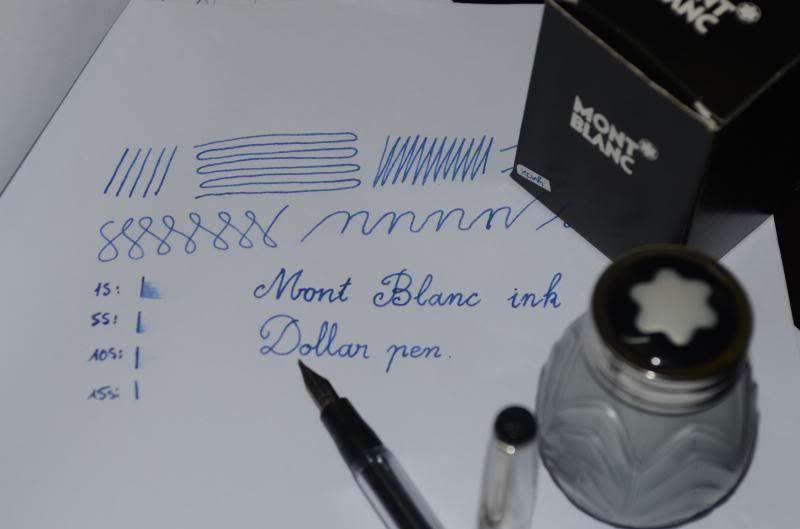 MONT
BLANC
MONT
BLANC
1S:
5S:
10S:
15S:
Mont Blanc ink
Dollar pen.